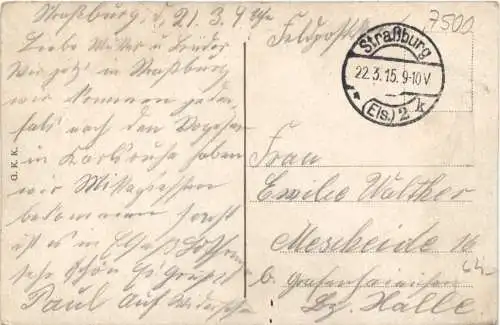 Straßburg, d, 21. 3. 4 Uhr
Liebe Mutter u Brüder
Wir jetzt in Straßburg
wir kommen jeden
falls nach den Vogesen
in Karlsruhe haben
wir Mittagessen
bekommen sonst
ist es in Elsaß Lothringen
sehr schön Es Grüßt
Paul Auf Wiedersehn
G. K. K.
Feldpost
7500
Straßburg
22.3.15.9-10V
(Els.) 2 k
Frau
Emilie Walther
Merscheide 16
b. Gräfenhainichen
Bz. Halle